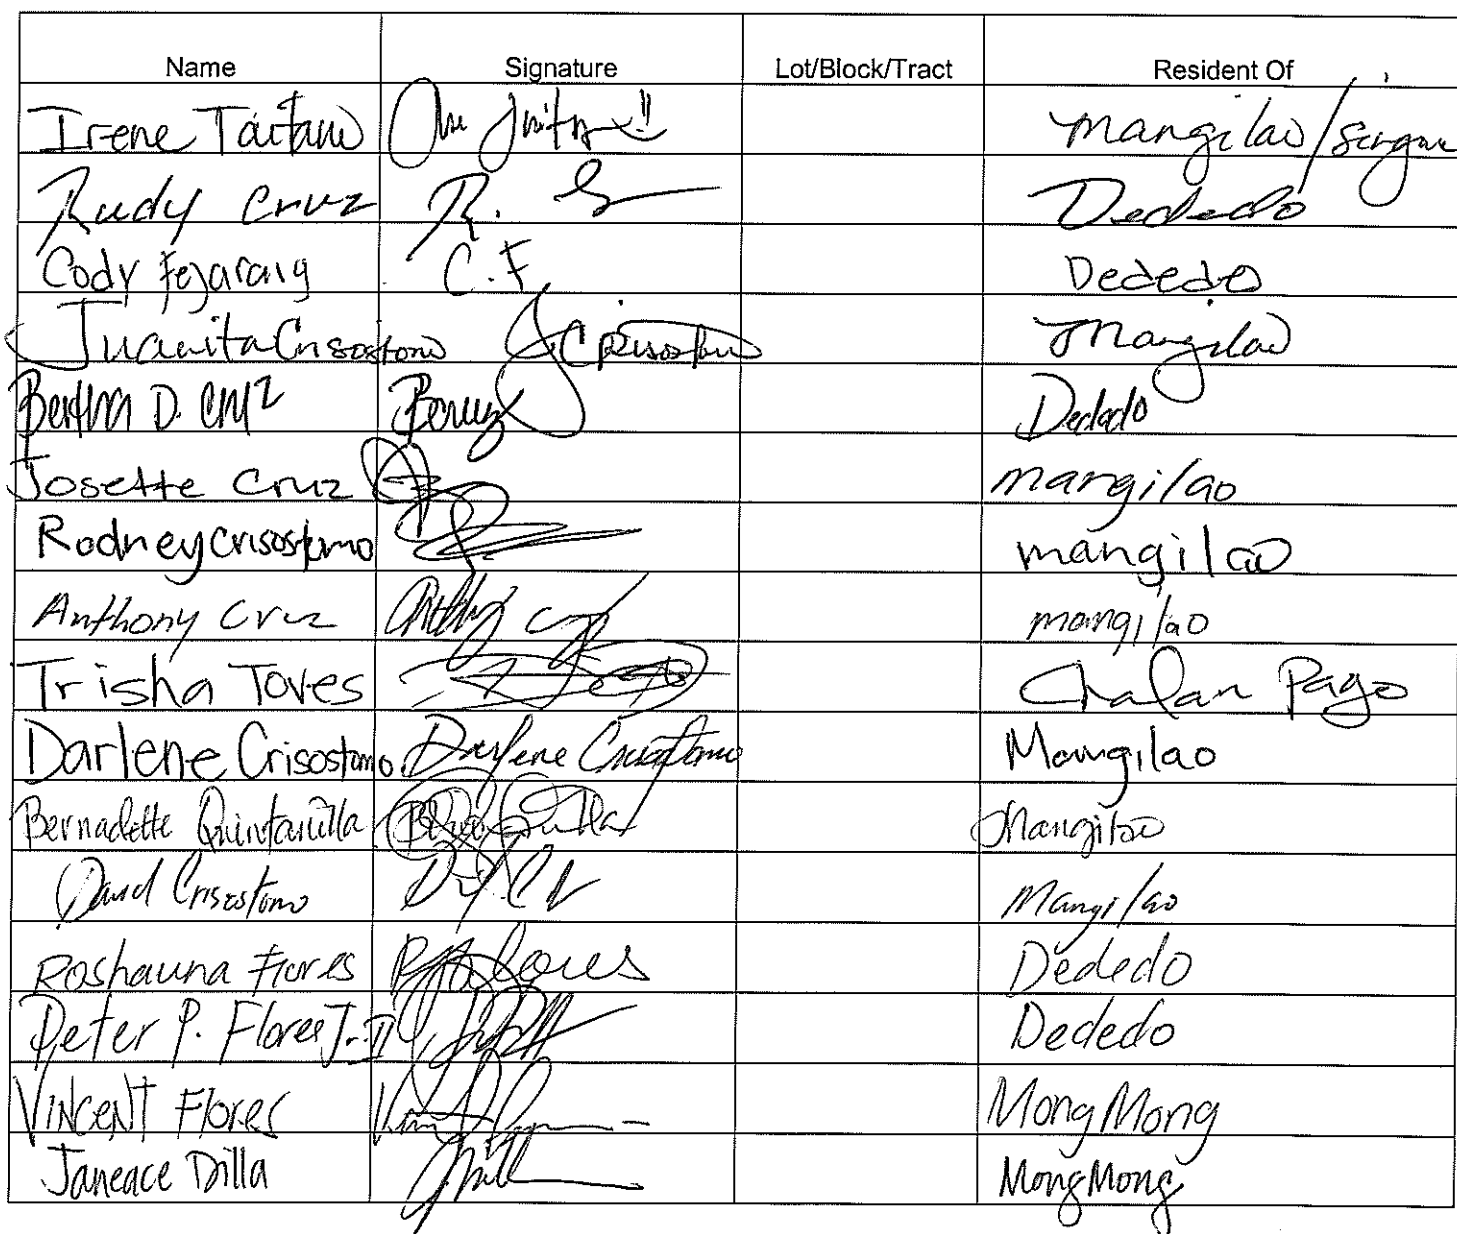 Name Signature Lot/Block/Tract Resident Of
Irene Taitano mangilao/Sinajana
Rudy Cruz R. Dededo
Cody Fejarang C.F Dededo
Juanita Crisostomo JCrisostomo Mangilao
Bertha D. Cruz BCruz Dededo
Josette Cruz mangilao
Rodney Crisostomo mangilao
Anthony Cruz mangilao
Trisha Toves Chalan Pago
Darlene Crisostomo Darlene Crisostomo Mangilao
Bernadette Quintanilla Mangilao
David Crisostomo Mangilao
Roshauna Flores Dededo
Peter P. Flores Dededo
Vincent Flores MongMong
Janeace Dilla MongMong